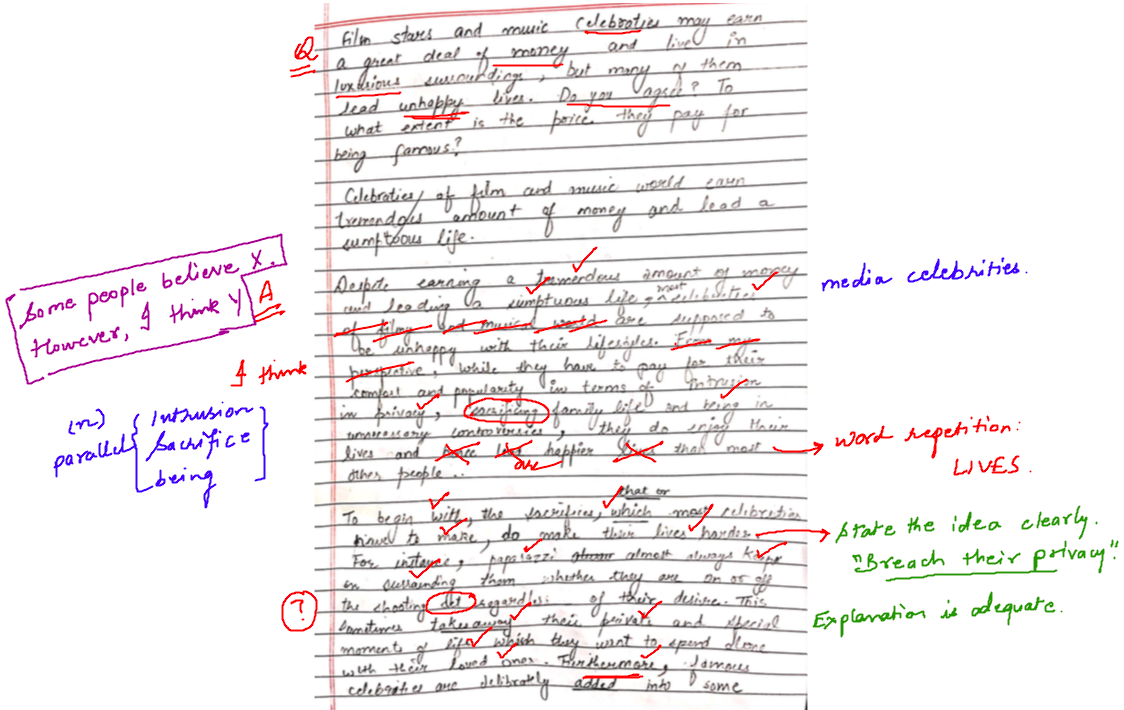 Q Film stars and music celebraties may earn
a great deal of money and live in
luxurious surroundings, but many of them
lead unhappy lives. Do you agree? To
what extent is the price they pay for
being famous?
Celebraties of film and music world earn
tremendous amount of money and lead a
sumptuous life.
Some people believe X.
However, I think Y
A
Despite earning a tremendous amount of money
and leading a sumptuous life, most celebraties
media celebrities.
of filmy and musical world are supposed to
be unhappy with their lifestyles. From my
I think
perspective, while they have to pay for their
comfort and popularity in terms of intrusion
in privacy, sacrificing family life and being in
unnecessary controversies, they do enjoy their
(n)
parallel { Intrusion
Sacrifice
being }
lives and happier lives than most
are
word repetition:
LIVES.
other people..
that or
To begin with, the sacrifices, which most celebraties
have to make, do make their lives harder.
State the idea clearly.
"Breach their privacy."
For instance, paparazzi almost always keeps
on surrounding them whether they are on or off
the shooting set regardless of their desire. This
?
Explanation is adequate.
sometimes takeaway their private and special
moments of life which they want to spend alone
with their loved ones. Furthermore, famous
celebraties are delibrately added into some